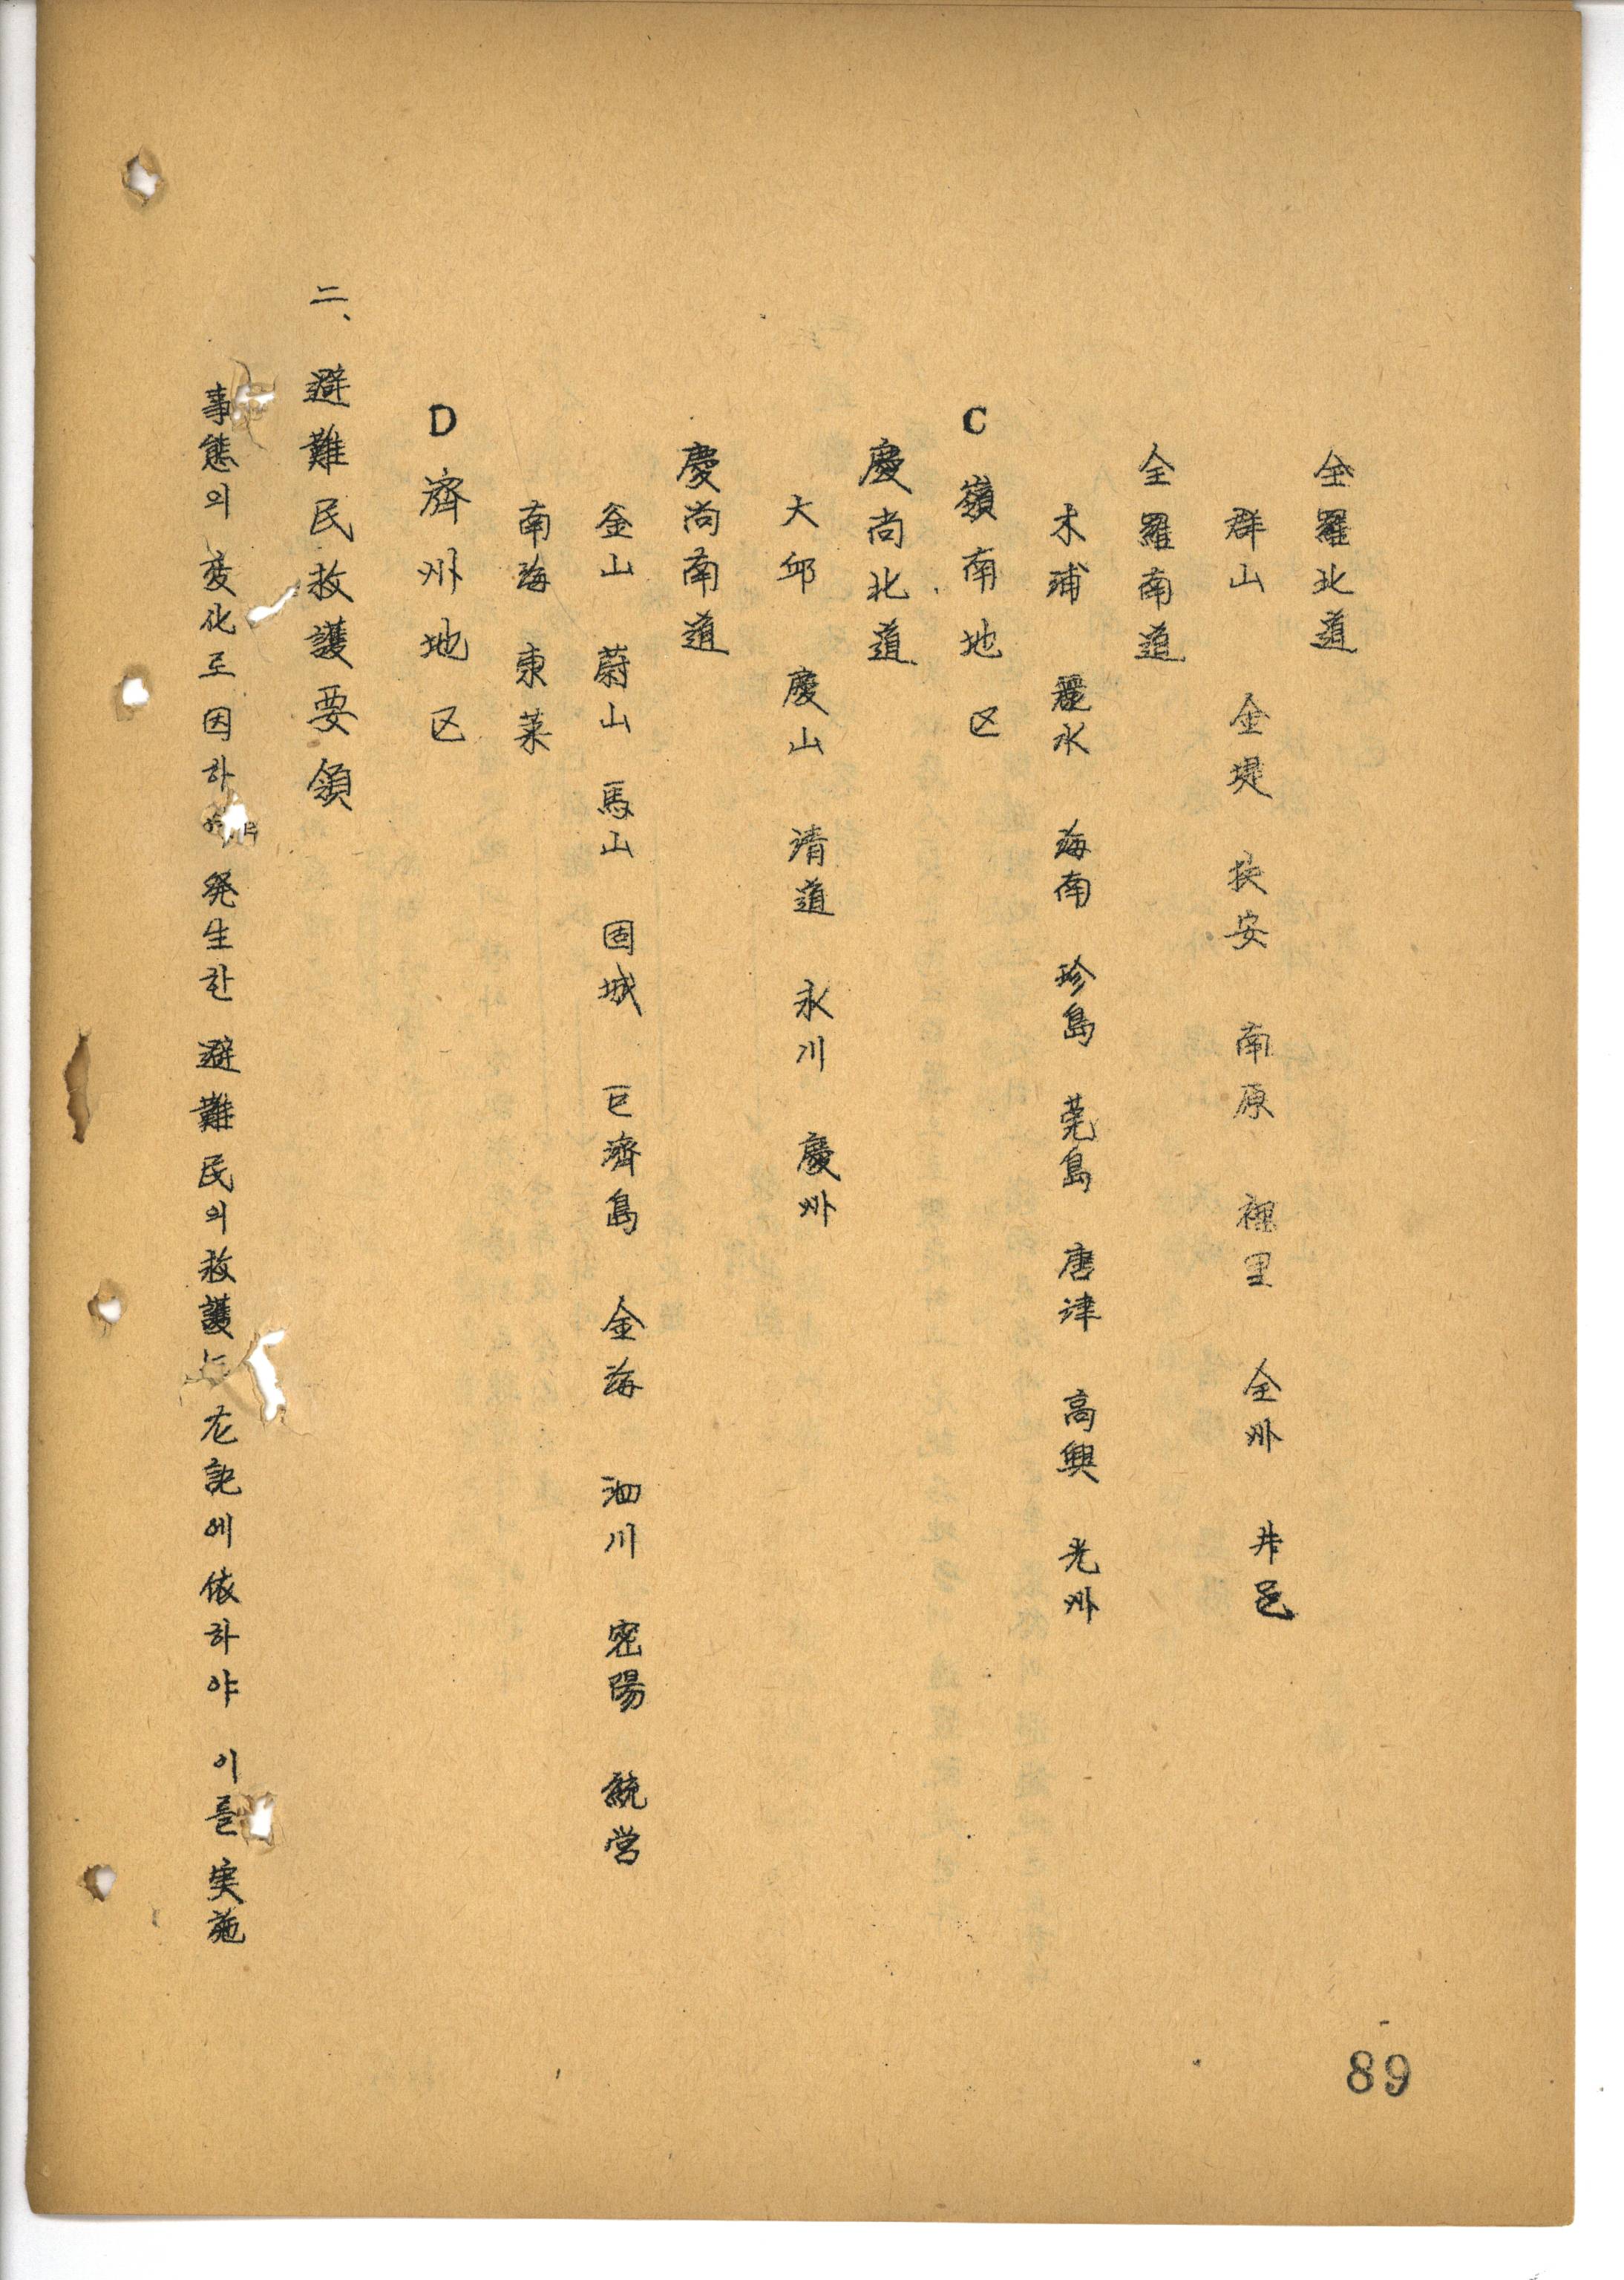 全羅北道
群山 金堤 扶安 南原 裡里 全州 井邑
全羅南道
木浦 麗水 海南 珍島 莞島 唐津 高興 光州
C 嶺南地区
慶尚北道
大邱 慶山 清道 永川 慶州
慶尚南道
釜山 蔚山 馬山 固城 巨濟島 金海 泗川 密陽 統営
南海 東莱
D 濟州地区
二、避難民救護要領
事態의 変化로 因하 発生한 避難民의 救護는 左記에 依하야 이를 実施
89